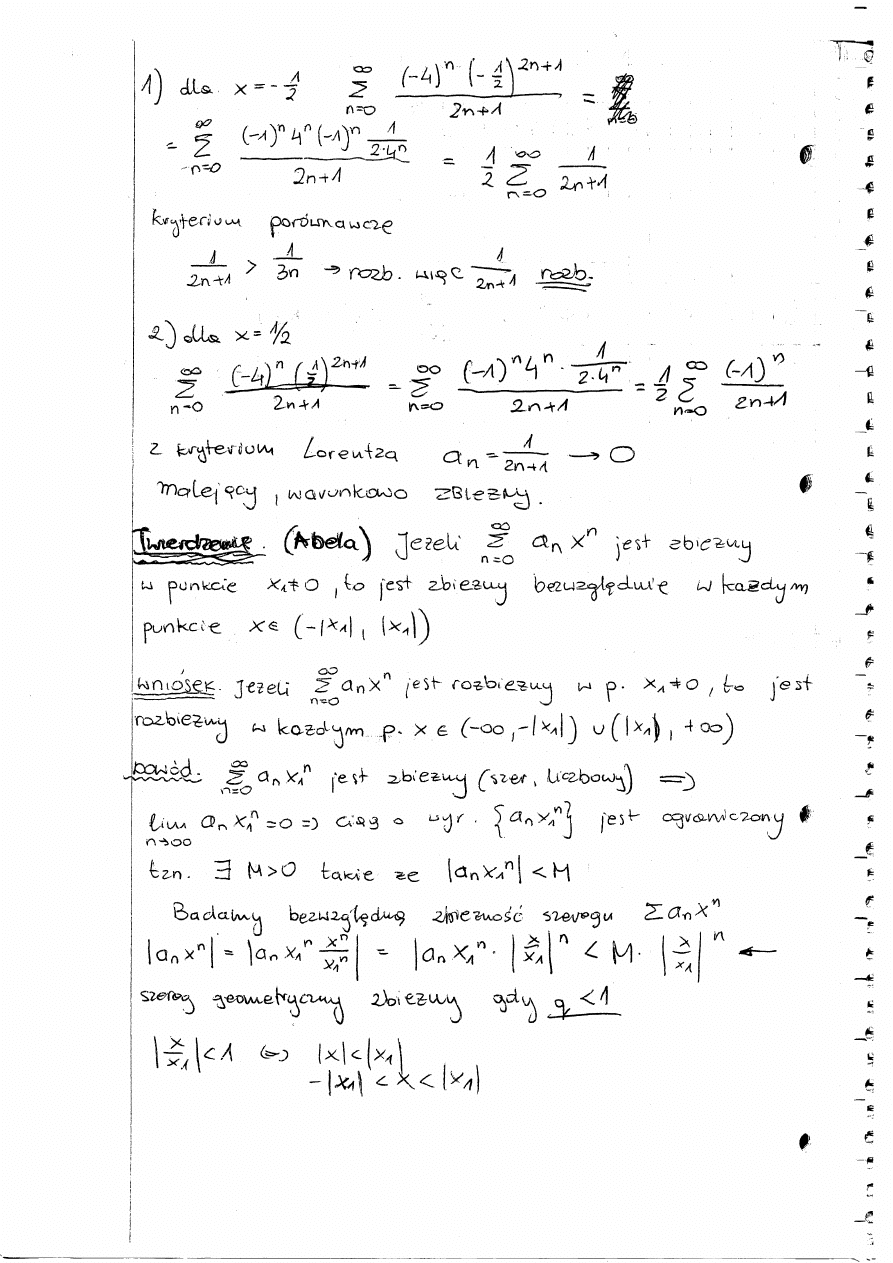 1) dla x = -1/2 ∑_{n=0}^{∞} (-4)^n (-1/2)^{2n+1} / 2n+1 =
= ∑_{n=0}^{∞} (-1)^n 4^n (-1)^n 1/(2·4^n) / 2n+1 = 1/2 ∑_{n=0}^{∞} 1/(2n+1)
kryterium porównawcze
1/(2n+1) > 1/(3n) → rozb. więc 1/(2n+1) rozb.
2) dla x = 1/2
∑_{n=0}^{∞} (-4)^n (1/2)^{2n+1} / 2n+1 = ∑_{n=0}^{∞} (-1)^n 4^n · 1/(2·4^n) / 2n+1 = 1/2 ∑_{n=0}^{∞} (-1)^n / 2n+1
z kryterium Lorentza a_n = 1/(2n+1) → 0
malejący, warunkowo zbieżny.
Twierdzenie. (Abela) Jeżeli ∑_{n=0}^{∞} a_n x^n jest zbieżny
w punkcie x_1 ≠ 0, to jest zbieżny bezwzględnie w każdym
punkcie x ∈ (-|x_1|, |x_1|)
wniosek. Jeżeli ∑_{n=0}^{∞} a_n x^n jest rozbieżny w p. x_1 ≠ 0, to jest
rozbieżny w każdym p. x ∈ (-∞, -|x_1|) ∪ (|x_1|, +∞)
Dowód. ∑_{n=0}^{∞} a_n x_1^n jest zbieżny (szer. liczbowy) ⇒
lim_{n→∞} a_n x_1^n = 0 ⇒ ciąg o wyr. {a_n x_1^n} jest ograniczony
tzn. ∃ M>0 takie że |a_n x_1^n| < M
Badamy bezwzględną zbieżność szeregu ∑ a_n x^n
|a_n x^n| = |a_n x_1^n x^n/x_1^n| = |a_n x_1^n · |x/x_1|^n < M · |x/x_1|^n ←
szereg geometryczny zbieżny gdy q < 1
|x/x_1| < 1 ⇔ |x| < |x_1|
-|x_1| < x < |x_1|